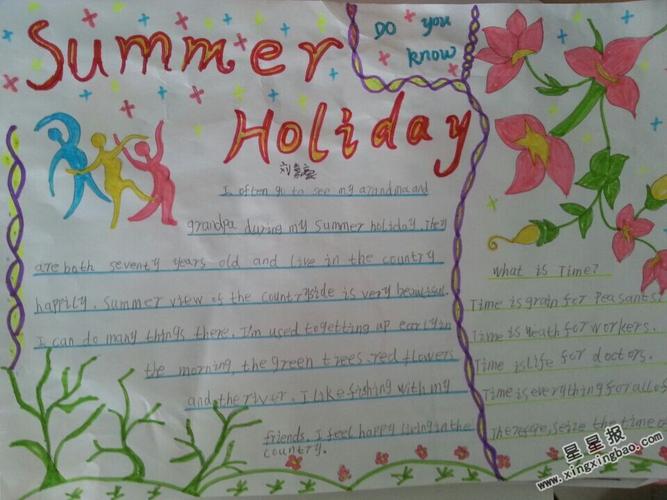 Summer
Holiday
DO you
know
I often go to see my grandma and
grandpa during my summer holiday. They
are both seventy years old and live in the country
happily. Summer view of the countryside is very beautiful.
I can do many things there. I'm used to getting up early in
the morning, the green trees. red flowers
and the river. I like fishing with my
friends. I feel happy living in the
country.
What is Time?
Time is grain for Peasants
Time is wealth for workers.
Time is life for doctors.
Time is everything for all of
Therefore, seize the time
星星报
www.xingxingbao.com